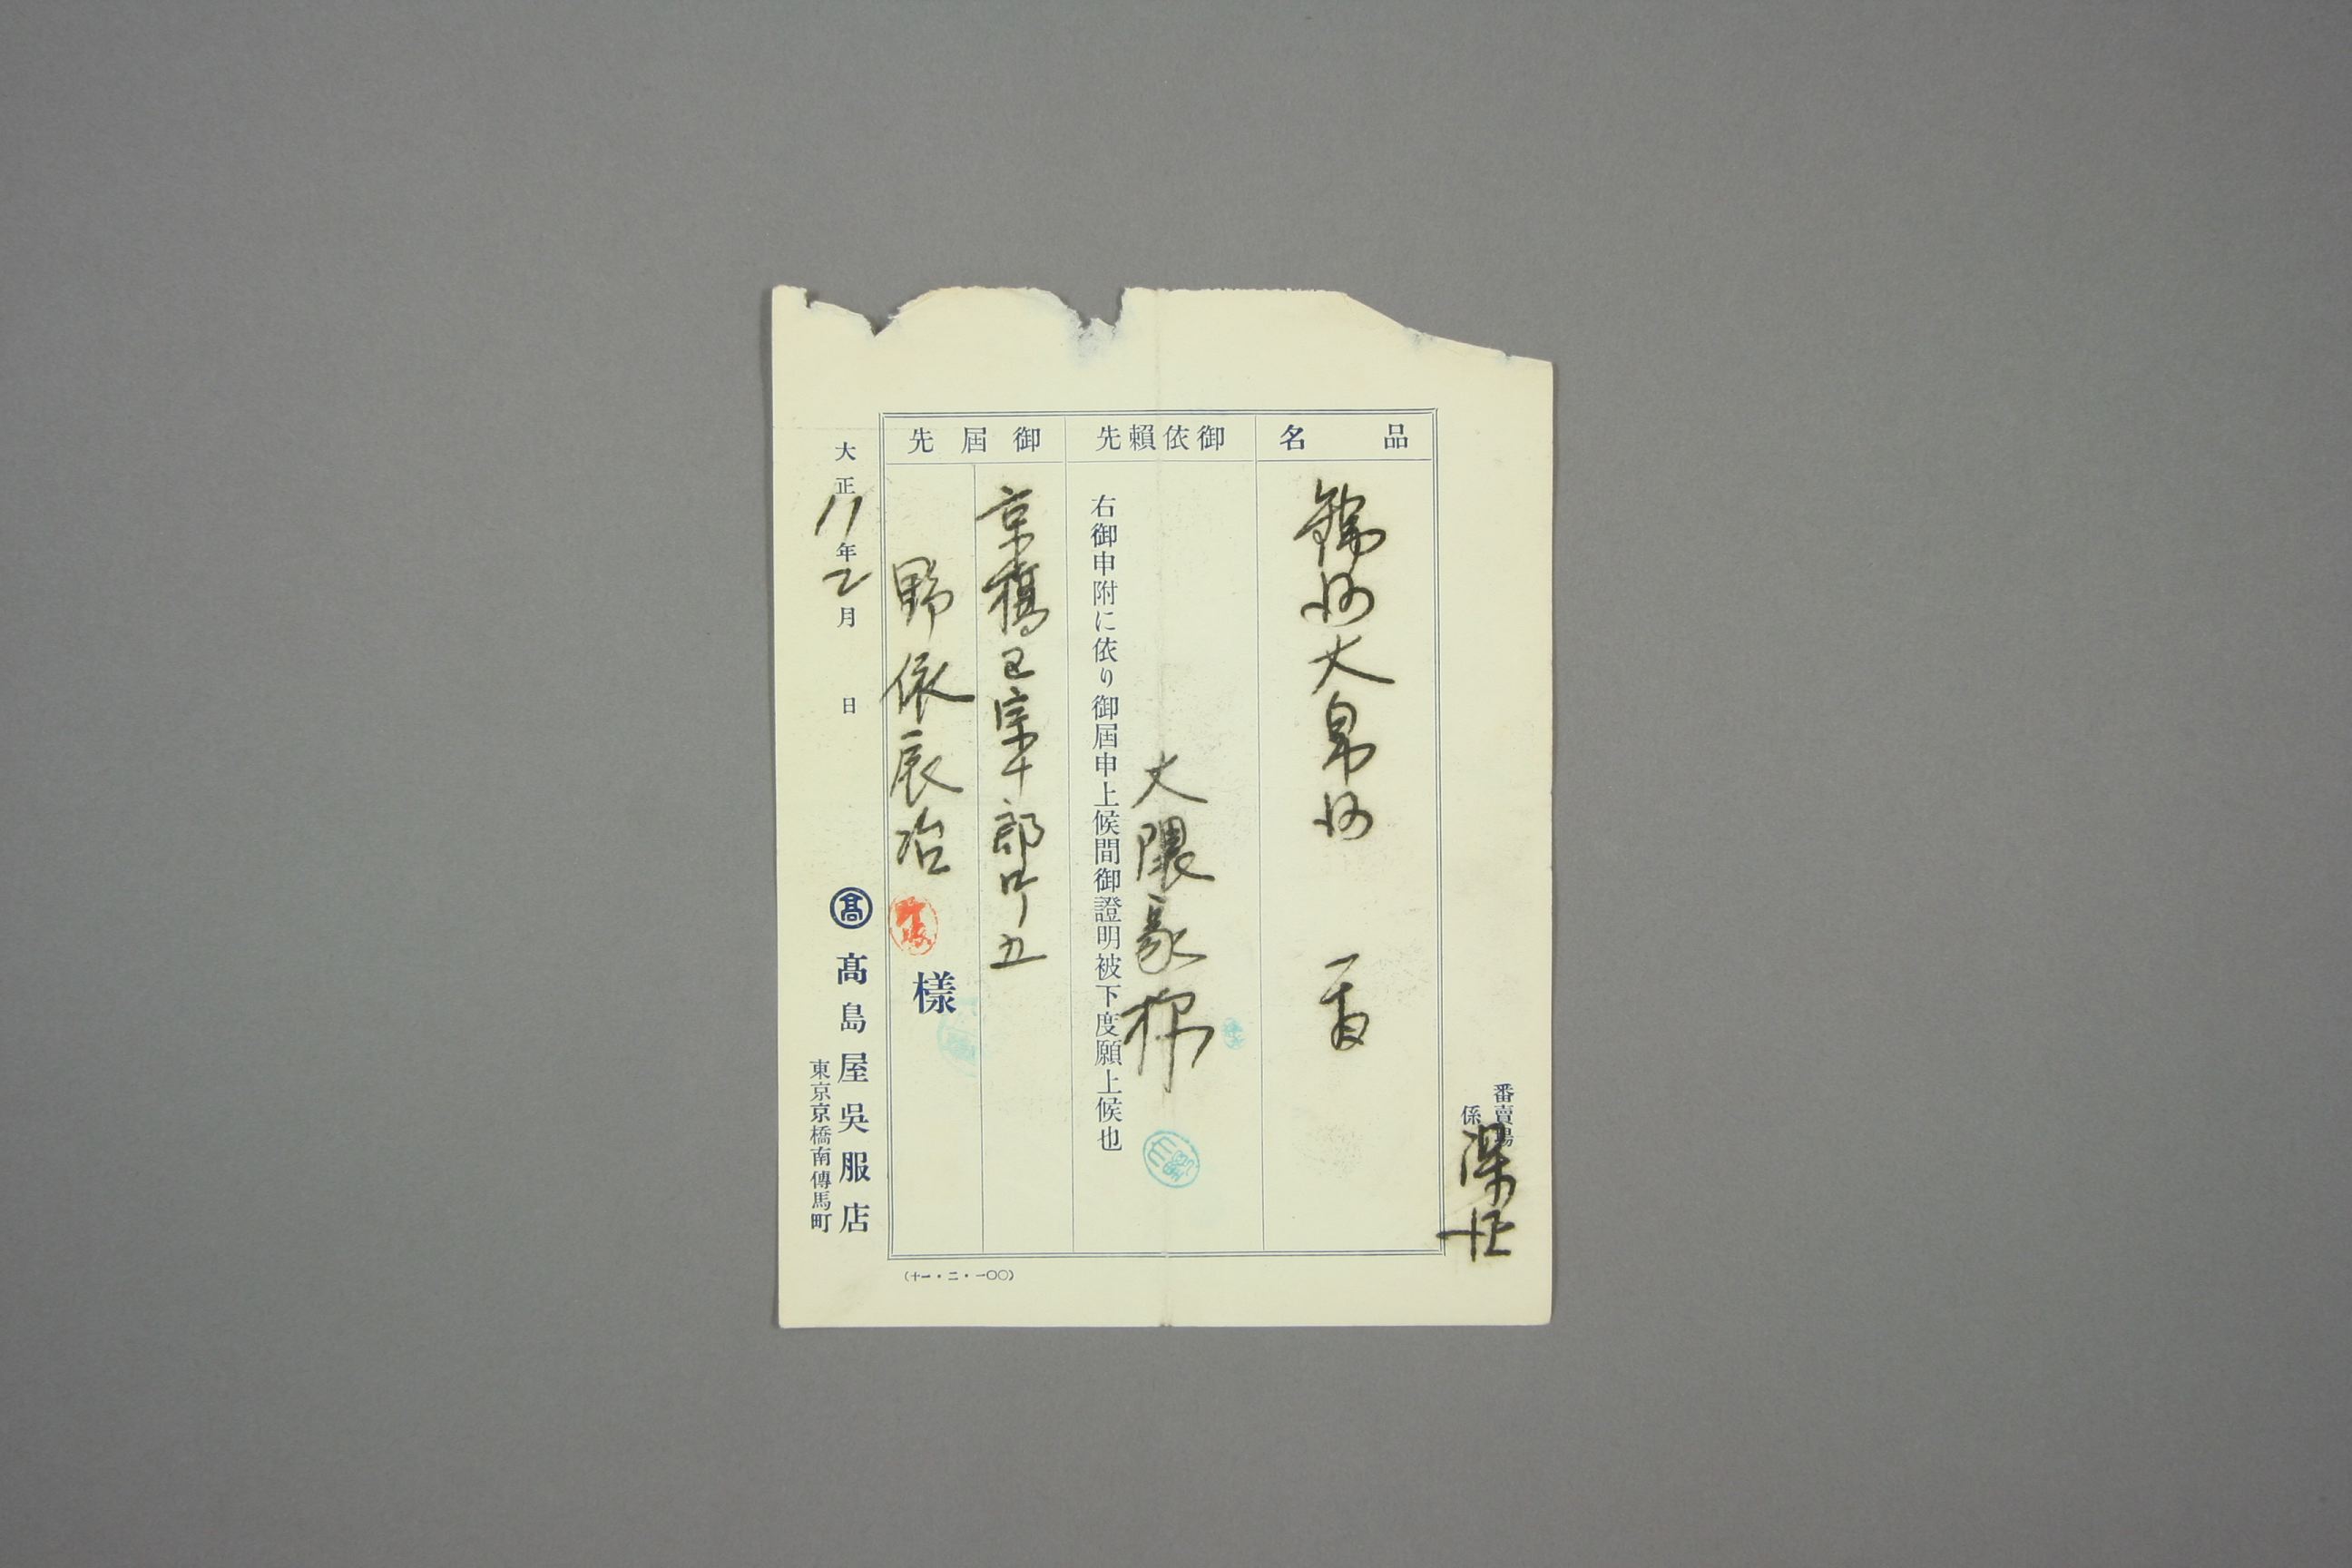 番賣場
係
品名
錦紗大帛紗 一
御依賴先
大隈家
右御申附に依り御屆申上候間御證明被下度願上候也
御屆先
京橋區宗十郎町十五
野依辰治
樣
大正11年2月 日
髙
髙島屋吳服店
東京京橋南傳馬町
(十一・二・一〇〇)